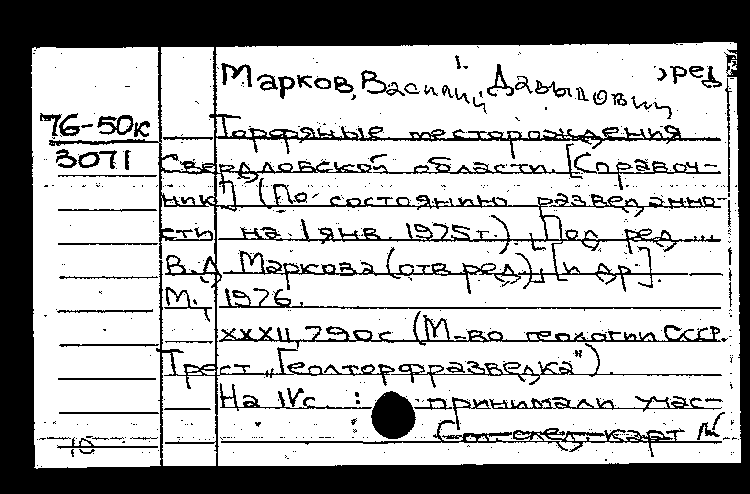 1.
Марков, Василий Давыдович, ред
76-50к
3071
Торфяные месторождения
Свердловской области. [Справоч-
ник] (По состоянию разведанно-
сти на 1 янв. 1975г.). Под ред ...
В.Д. Маркова (отв ред.), [и др].
М., 1976.
XXXII, 790с (М-во геологии СССР.
Трест „Геолторфразведка").
На IVс. : принимали учас-
См. след. карт
10